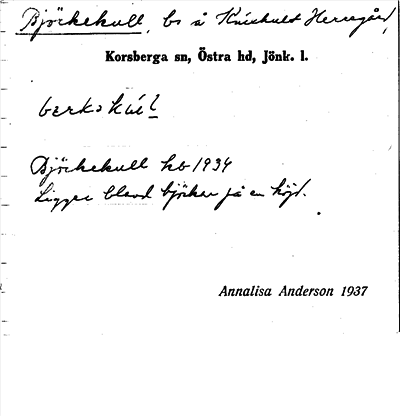 Björkekull, ls å Knishult Herregård,
Korsberga sn, Östra hd, Jönk. l.
bærkəkúl
Björkekull kb 1934
Ligger bland björkar på en höjd.
Annalisa Anderson 1937